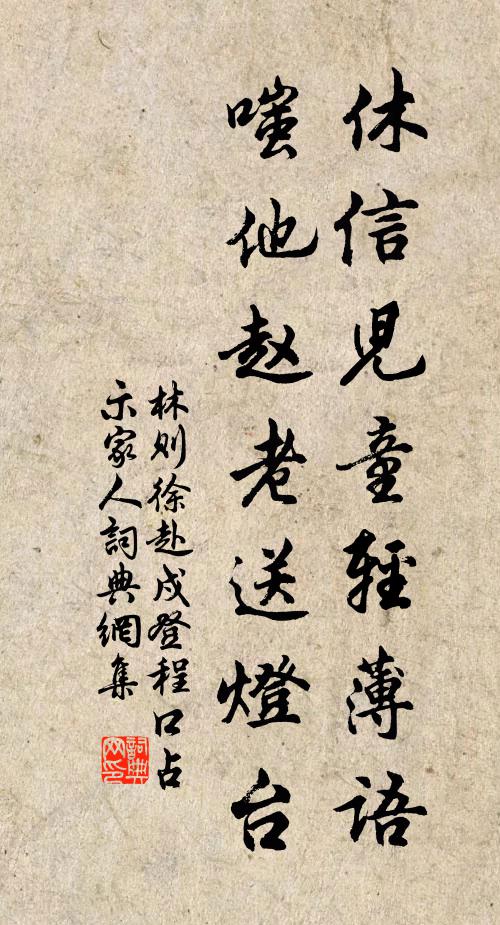 休信兒童輕薄語
嗤他赵老送燈台
林则徐赴戍登程口占
示家人詞典網集
詞典網印